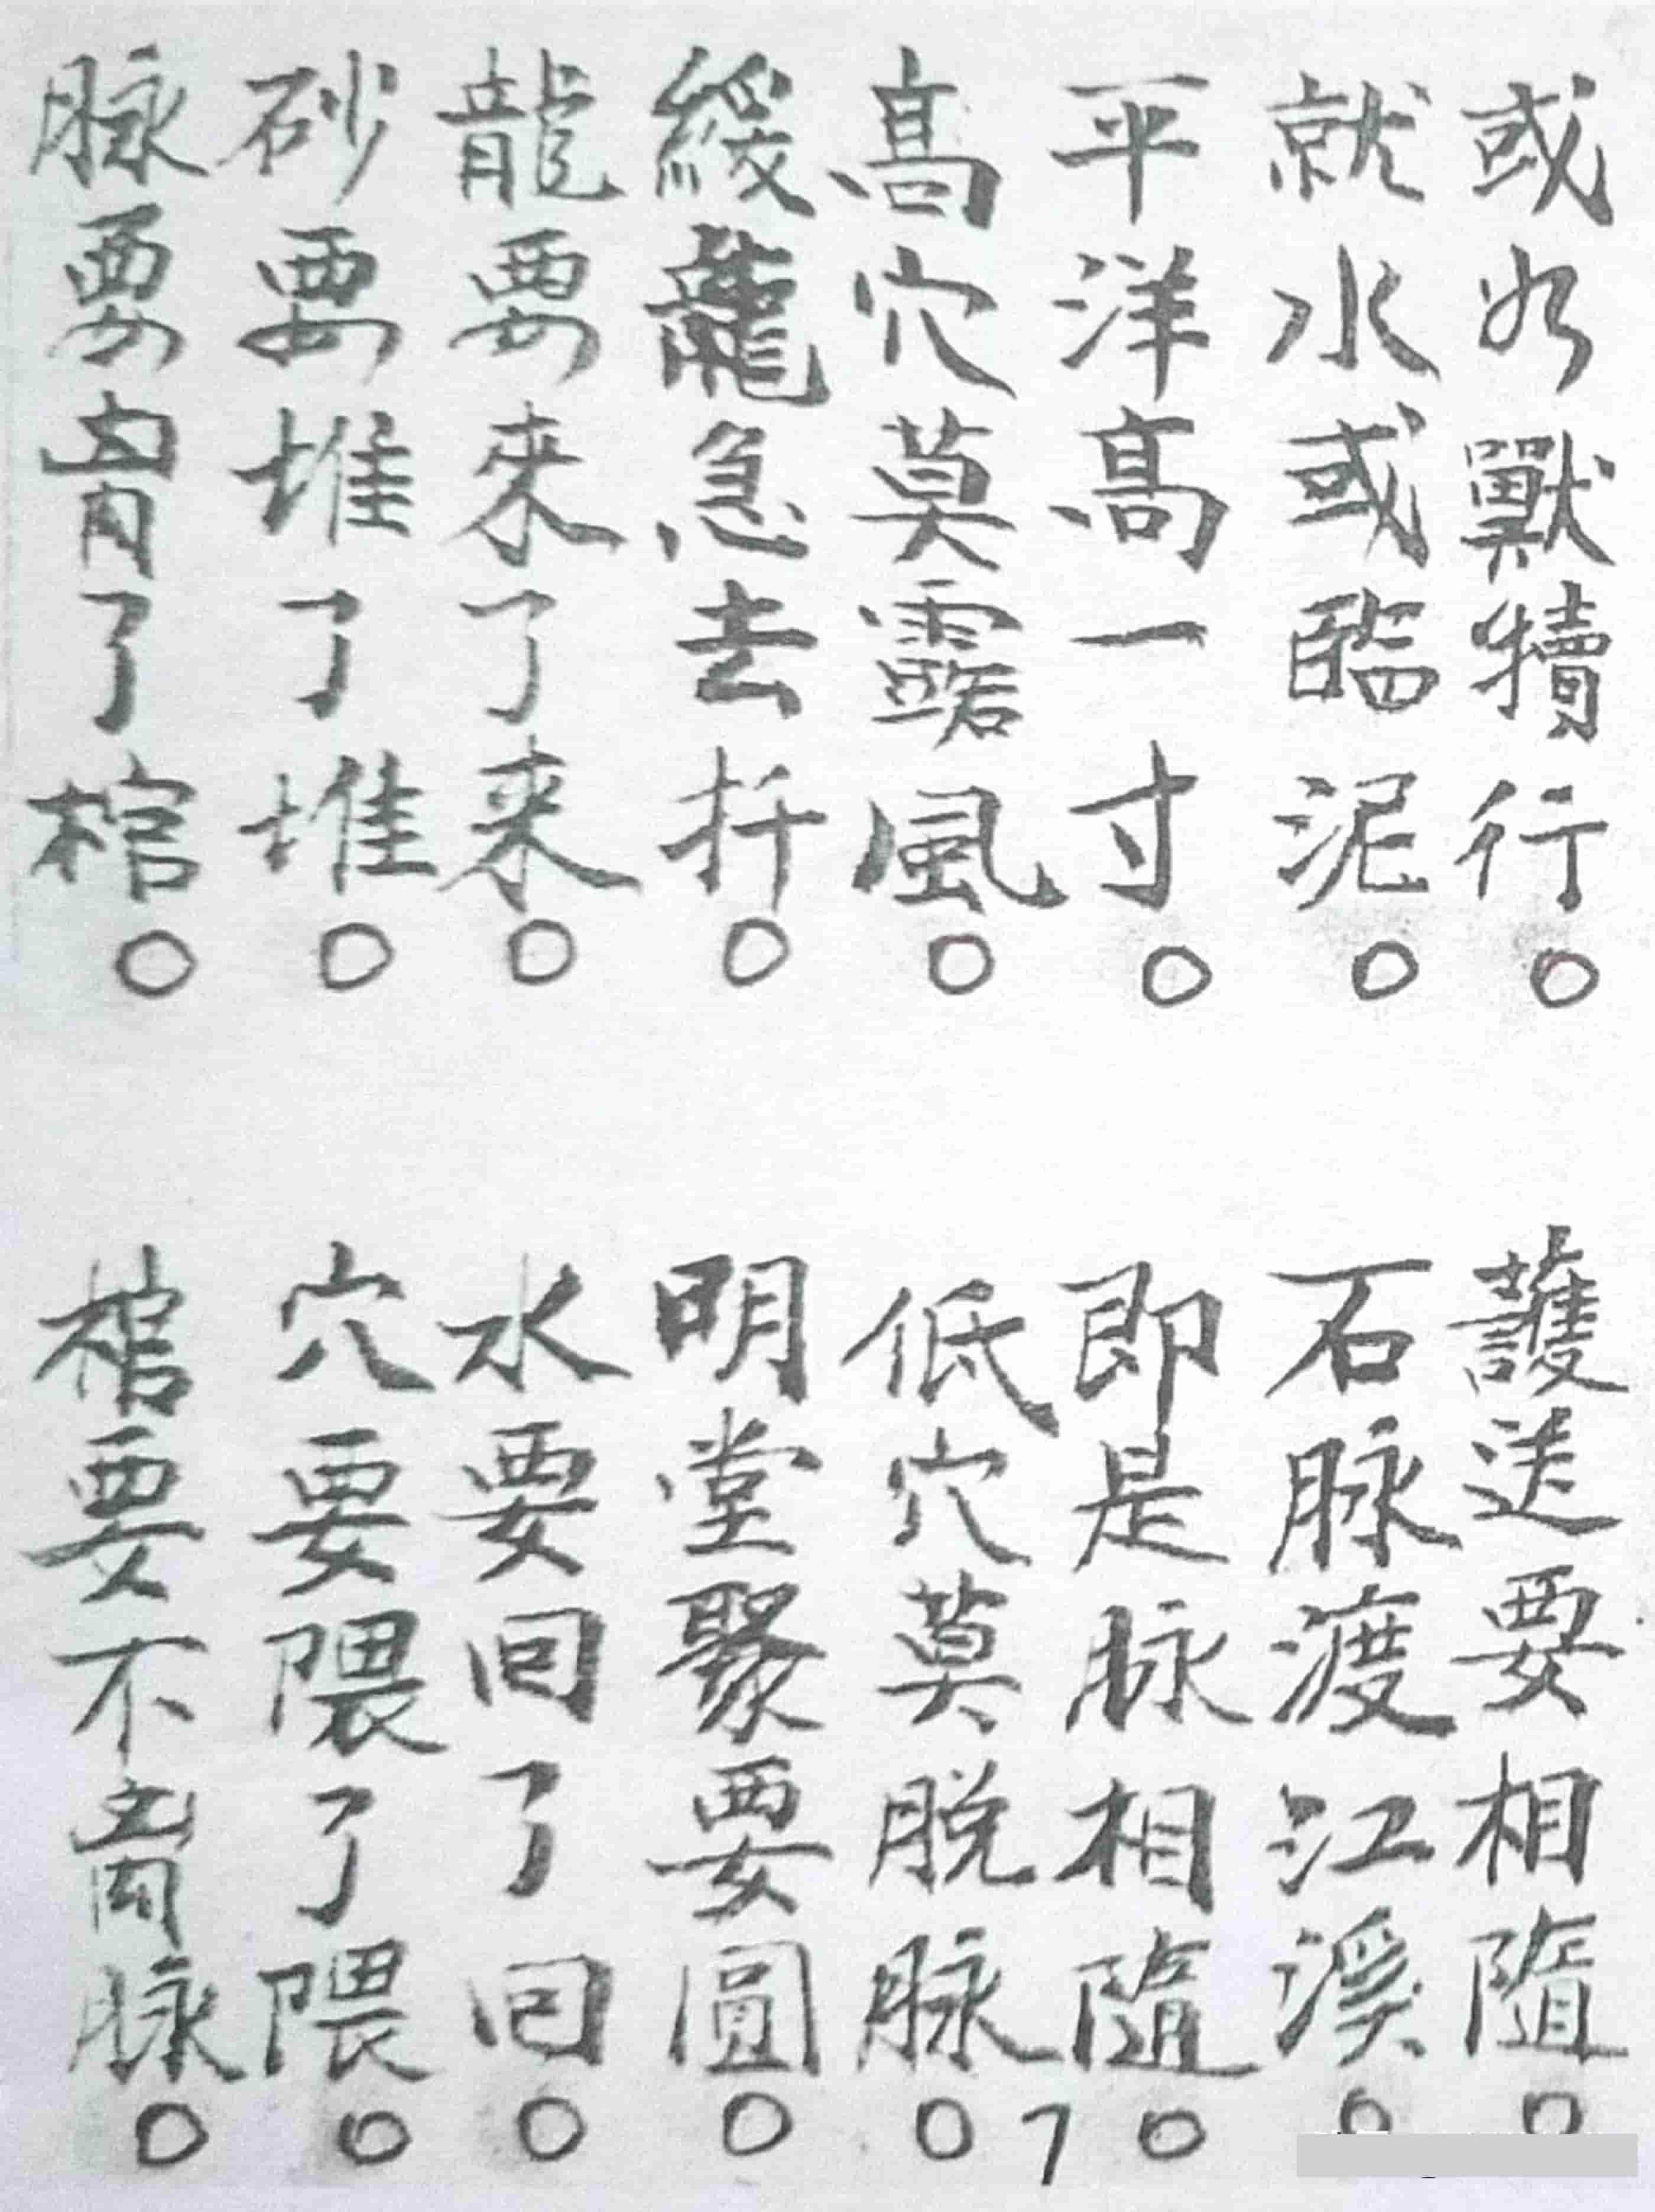 或如獸犢行。護送要相隨。
就水或臨泥。石脉渡江溪。
平洋高一寸。即是脉相隨。
高穴莫露風。低穴莫脫脉。
緩龍急去扦。明堂聚要圓。
龍要來了来。水要回了回。
砂要堆了堆。穴要隈了隈。
脉要了棺。棺要不脉。
7